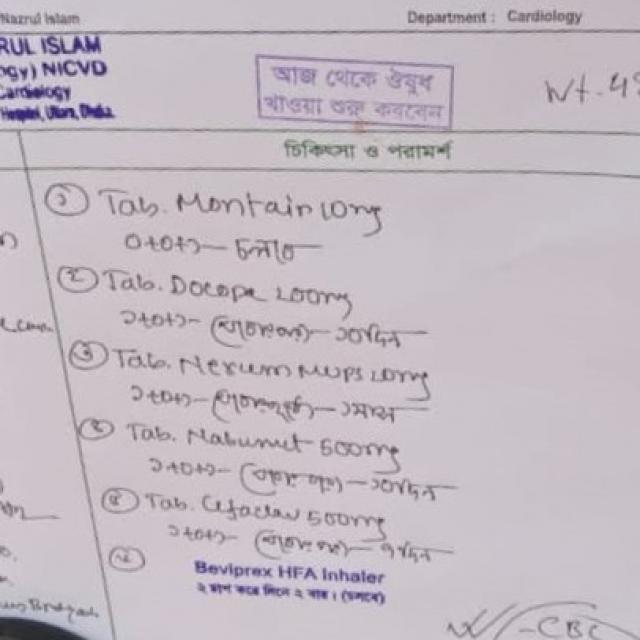 Nazrul Islam Department : Cardiology
RUL ISLAM
ogy) NICVD
Cardiology
Hospital, Uttara, Dhaka
আজ থেকে ঔষুধ
খাওয়া শুরু করবেন
Wt-
চিকিৎসা ও পরামর্শ
১ Tab. Montair 10mg
০+০+১ — চলবে
২ Tab. Docopa 200mg
১+০+১ — (খাওয়ার পর) — ১০দিন
৩ Tab. Nexum mups 20mg
১+০+১ — (খাওয়ার আগে) — ১মাস
৪ Tab. Nabumet 500mg
১+০+১ — (খাওয়ার পর) — ১০দিন
৫ Tab. Cefaclav 500mg
১+০+১ — (খাওয়ার পর) — ৭দিন
৬ Beviprex HFA Inhaler
২ চাপ করে দিনে ২ বার। (চলবে)
- CBC